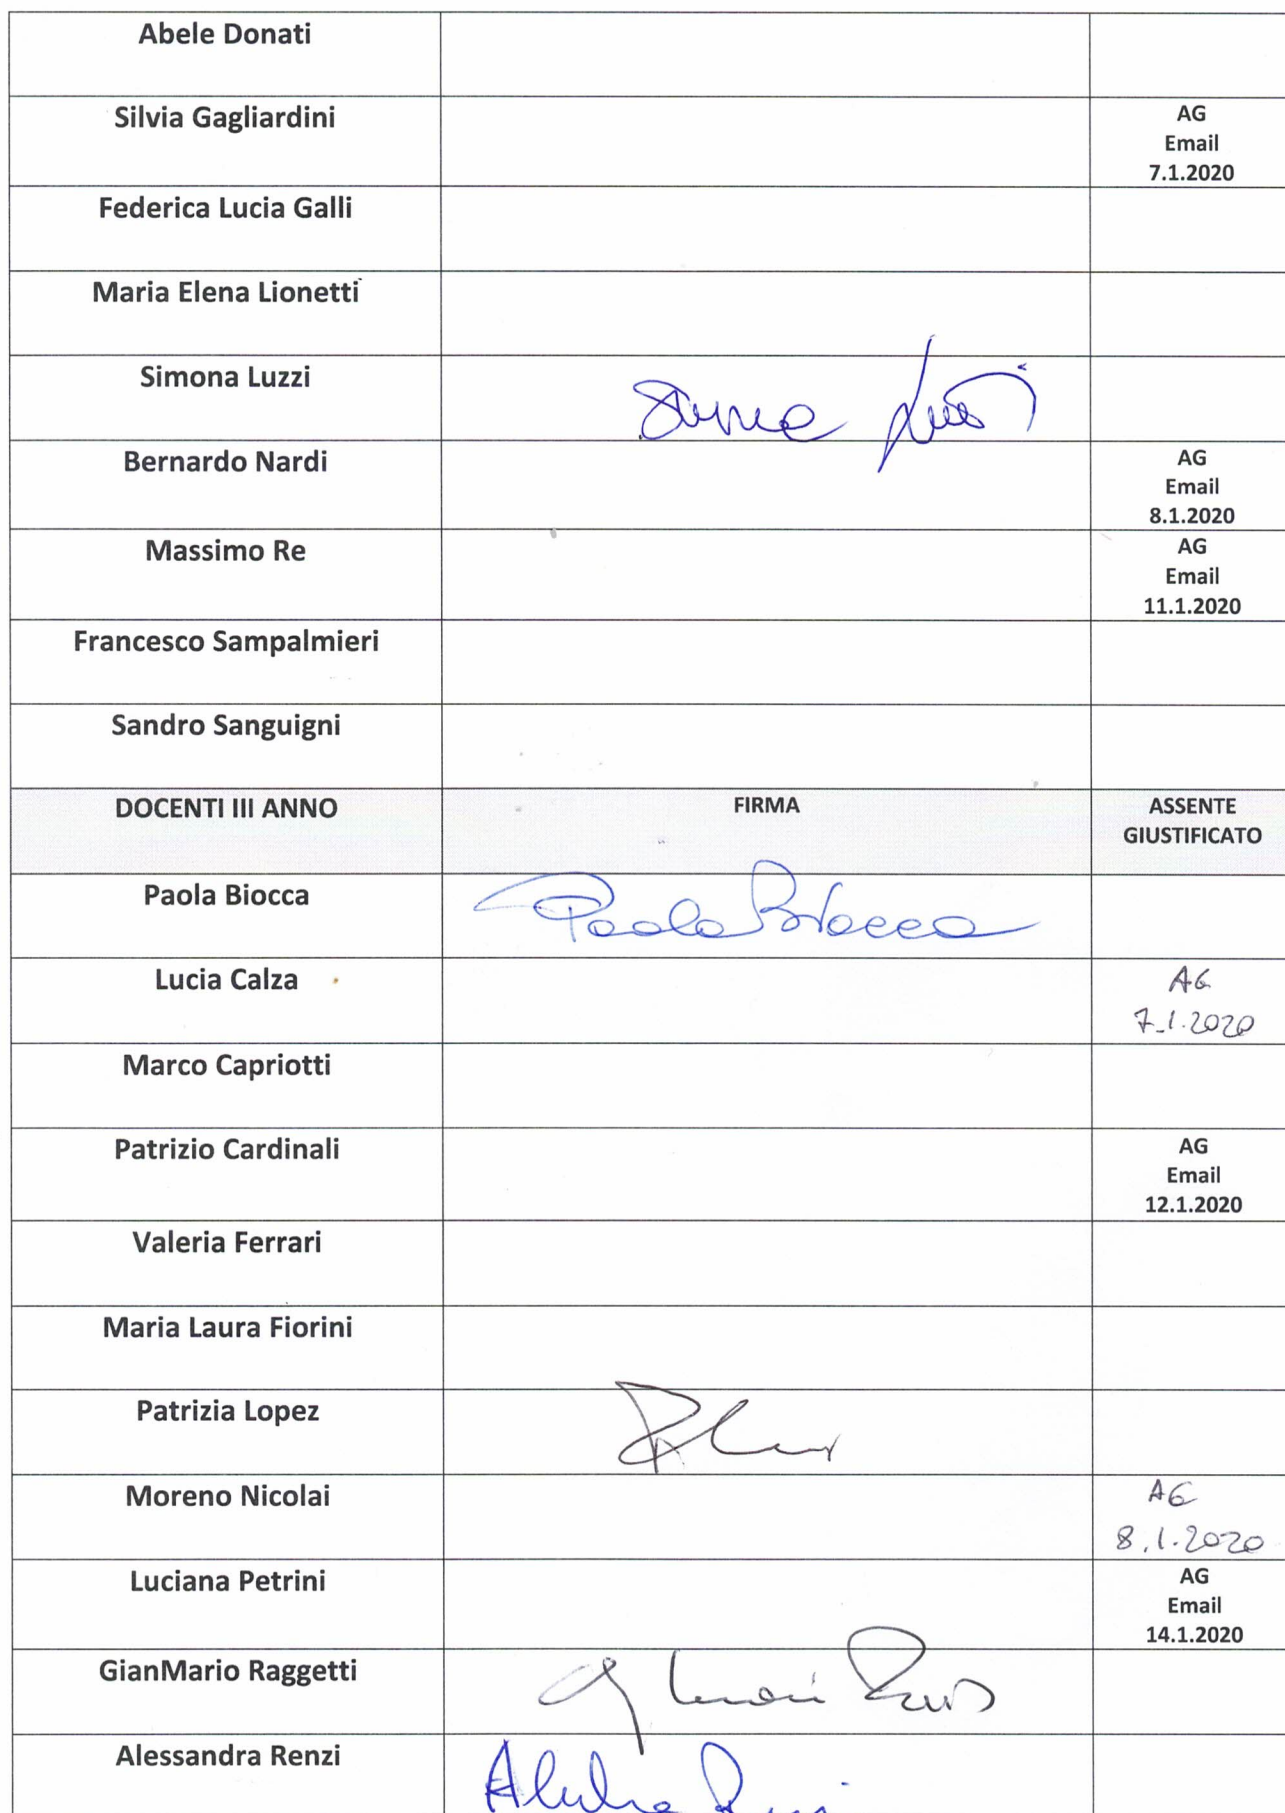 Abele Donati
Silvia Gagliardini
AG
Email
7.1.2020
Federica Lucia Galli
Maria Elena Lionetti
Simona Luzzi
Bernardo Nardi
AG
Email
8.1.2020
Massimo Re
AG
Email
11.1.2020
Francesco Sampalmieri
Sandro Sanguigni
DOCENTI III ANNO FIRMA ASSENTE
GIUSTIFICATO
Paola Biocca Paola Biocca
Lucia Calza AG
7.1.2020
Marco Capriotti
Patrizio Cardinali
AG
Email
12.1.2020
Valeria Ferrari
Maria Laura Fiorini
Patrizia Lopez
Moreno Nicolai AG
8.1.2020
Luciana Petrini
AG
Email
14.1.2020
GianMario Raggetti
Alessandra Renzi